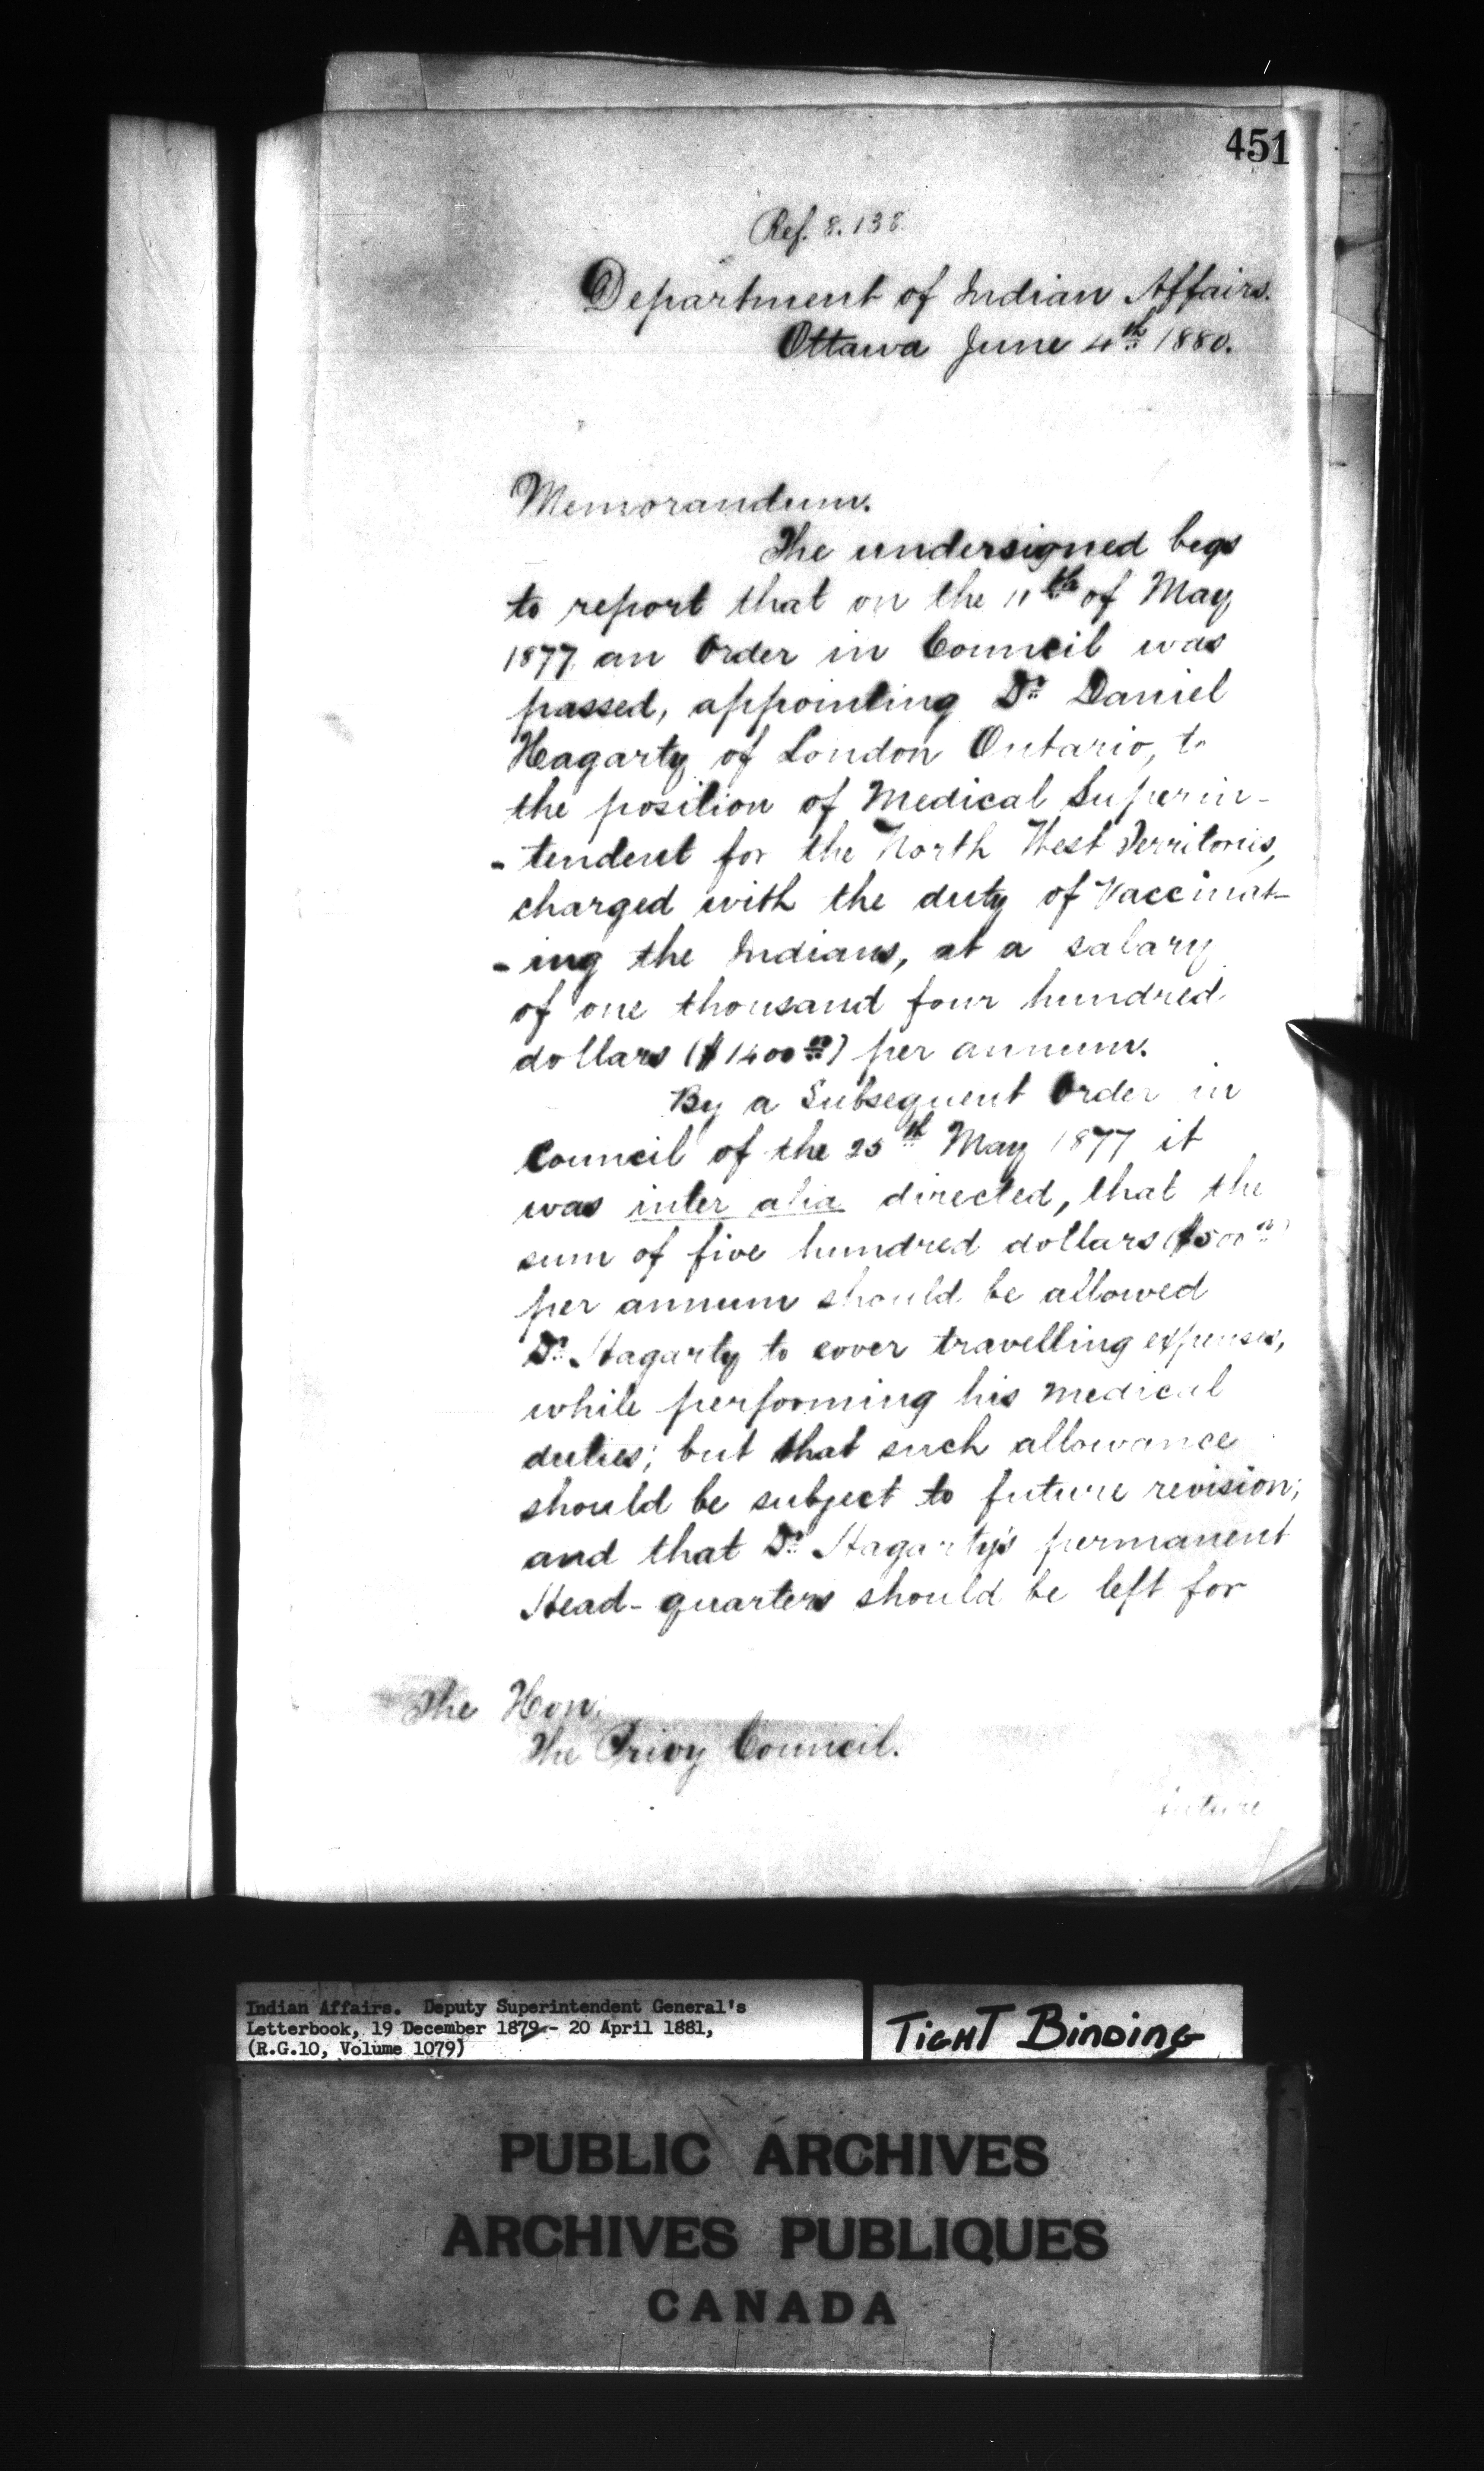 451
Ref. 8.138.
Department of Indian Affairs.
Ottawa June 4th 1880.
Memorandum.
The undersigned begs
to report that on the 11th of May
1877 an Order in Council was
passed, appointing Dr. Daniel
Hagarty of London Ontario, to
the position of Medical Superin-
-tendent for the North West Territories,
charged with the duty of Vaccinat-
-ing the Indians, at a salary
of one thousand four hundred
dollars ($1400.00) per annum.
By a Subsequent Order in
Council of the 25th May 1877 it
was inter alia directed, that the
sum of five hundred dollars ($500.00)
per annum should be allowed
Dr. Hagarty to cover travelling expenses,
while performing his medical
duties; but that such allowance
should be subject to future revision;
and that Dr. Hagarty's permanent
Head-quarters should be left for
The Hon:
The Privy Council.
future
Indian Affairs. Deputy Superintendent General's
Letterbook, 19 December 1879 - 20 April 1881,
(R.G.10, Volume 1079)
TIGHT BINDING
PUBLIC ARCHIVES
ARCHIVES PUBLIQUES
CANADA